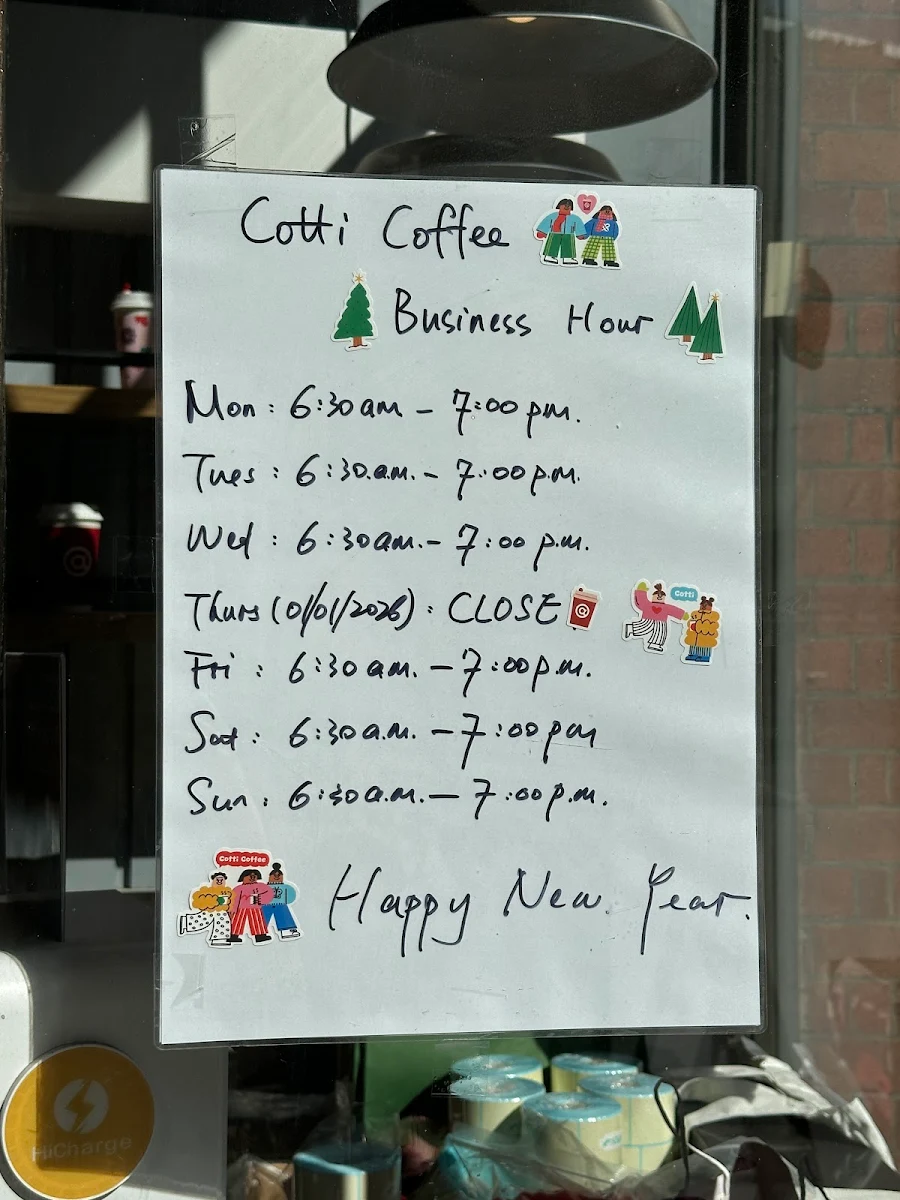 Cotti Coffee
Business Hour
Mon: 6:30am - 7:00 pm.
Tues: 6:30.a.m. - 7:00p.m.
Wed: 6:30am. - 7:00 p.m.
Thurs (01/01/2026): CLOSE
Cotti
Fri: 6:30am. - 7:00p.m.
Sat: 6:30a.m. - 7:00pm
Sun: 6:30a.m. - 7:00p.m.
Cotti Coffee
Happy New Year.
HiCharge